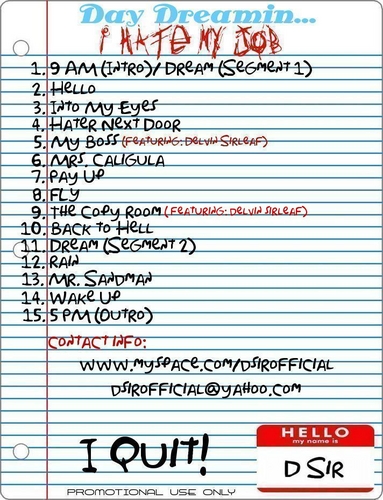 Day Dreamin...
I HATE MY JOB
1. 9 AM (INTRO) / DREAM (SEGMENT 1)
2. HELLO
3. INTO MY EYES
4. HATER NEXT DOOR
5. MY BOSS (FEATURING: DELVIN SIRLEAF)
6. MRS. CALIGULA
7. PAY UP
8. FLY
9. THE COPY ROOM (FEATURING: DELVIN SIRLEAF)
10. BACK TO HELL
11. DREAM (SEGMENT 2)
12. RAIN
13. MR. SANDMAN
14. WAKE UP
15. 5 PM (OUTRO)
CONTACT INFO:
WWW.MYSPACE.COM/DSIROFFICIAL
DSIROFFICIAL@YAHOO.COM
I QUIT!
HELLO
my name is
D SIR
PROMOTIONAL USE ONLY